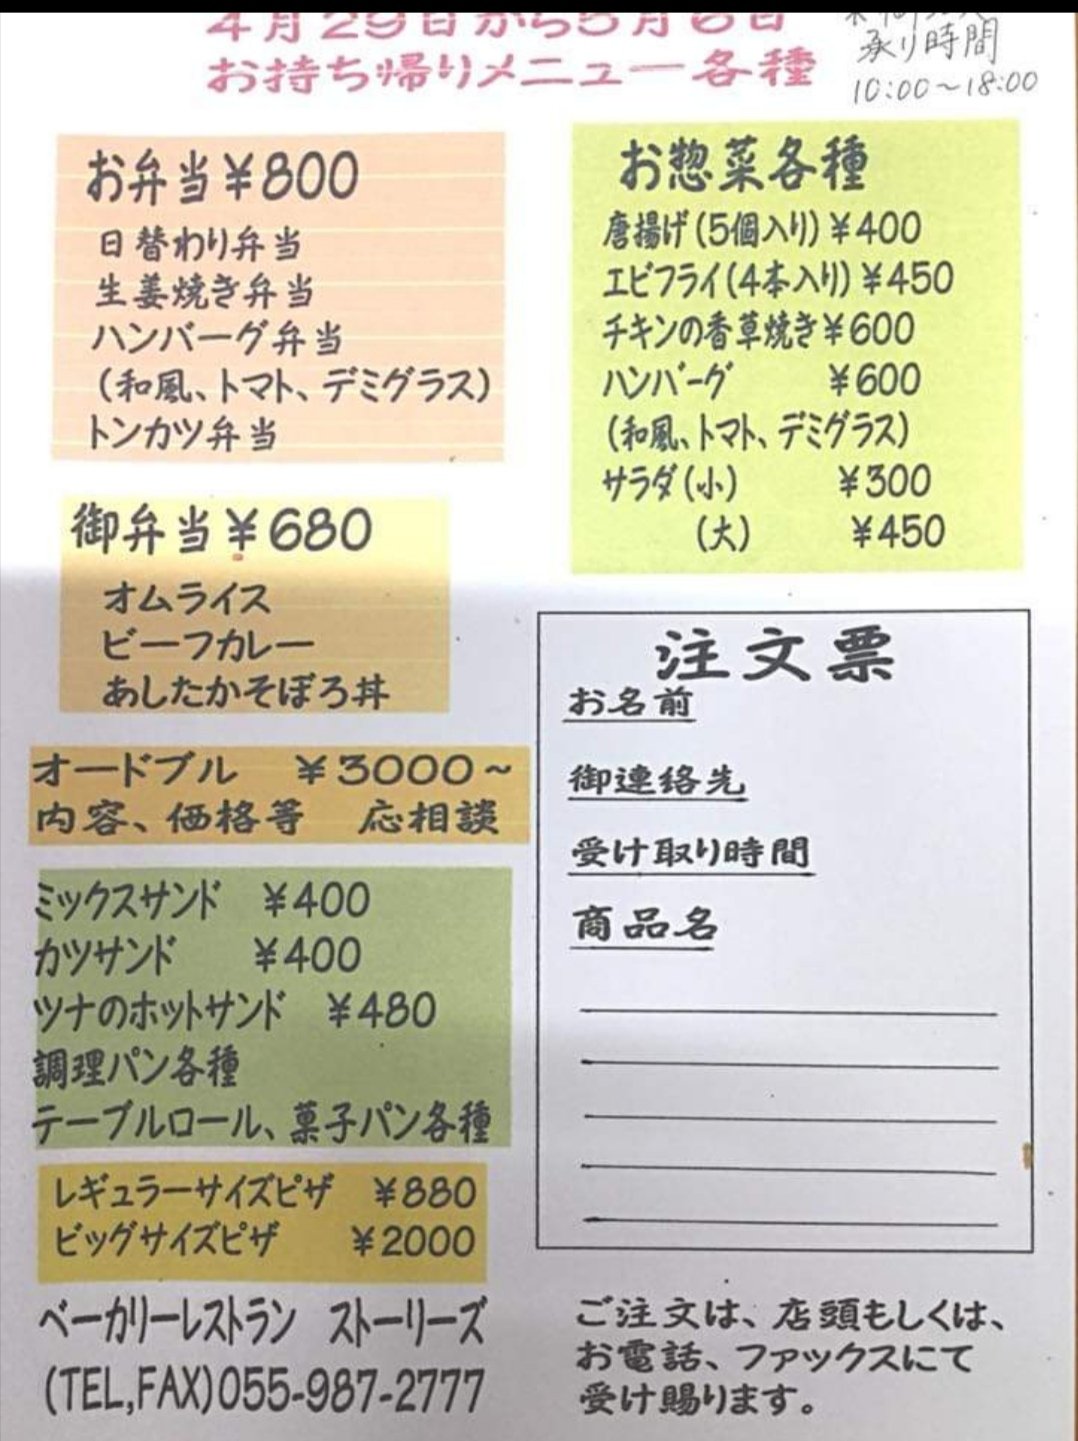 4月29日から5月6日
お持ち帰りメニュー各種
承り時間
10:00～18:00
お弁当¥800
日替わり弁当
生姜焼き弁当
ハンバーグ弁当
(和風、トマト、デミグラス)
トンカツ弁当
御弁当¥680
オムライス
ビーフカレー
あしたかそぼろ丼
オードブル ¥3000～
内容、価格等 応相談
ミックスサンド ¥400
カツサンド ¥400
ツナのホットサンド ¥480
調理パン各種
テーブルロール、菓子パン各種
レギュラーサイズピザ ¥880
ビッグサイズピザ ¥2000
ベーカリーレストラン ストーリーズ
(TEL,FAX)055-987-2777
お惣菜各種
唐揚げ(5個入り)¥400
エビフライ(4本入り)¥450
チキンの香草焼き¥600
ハンバーグ ¥600
(和風、トマト、デミグラス)
サラダ(小) ¥300
(大) ¥450
注文票
お名前
御連絡先
受け取り時間
商品名
ご注文は、店頭もしくは、
お電話、ファックスにて
受け賜ります。